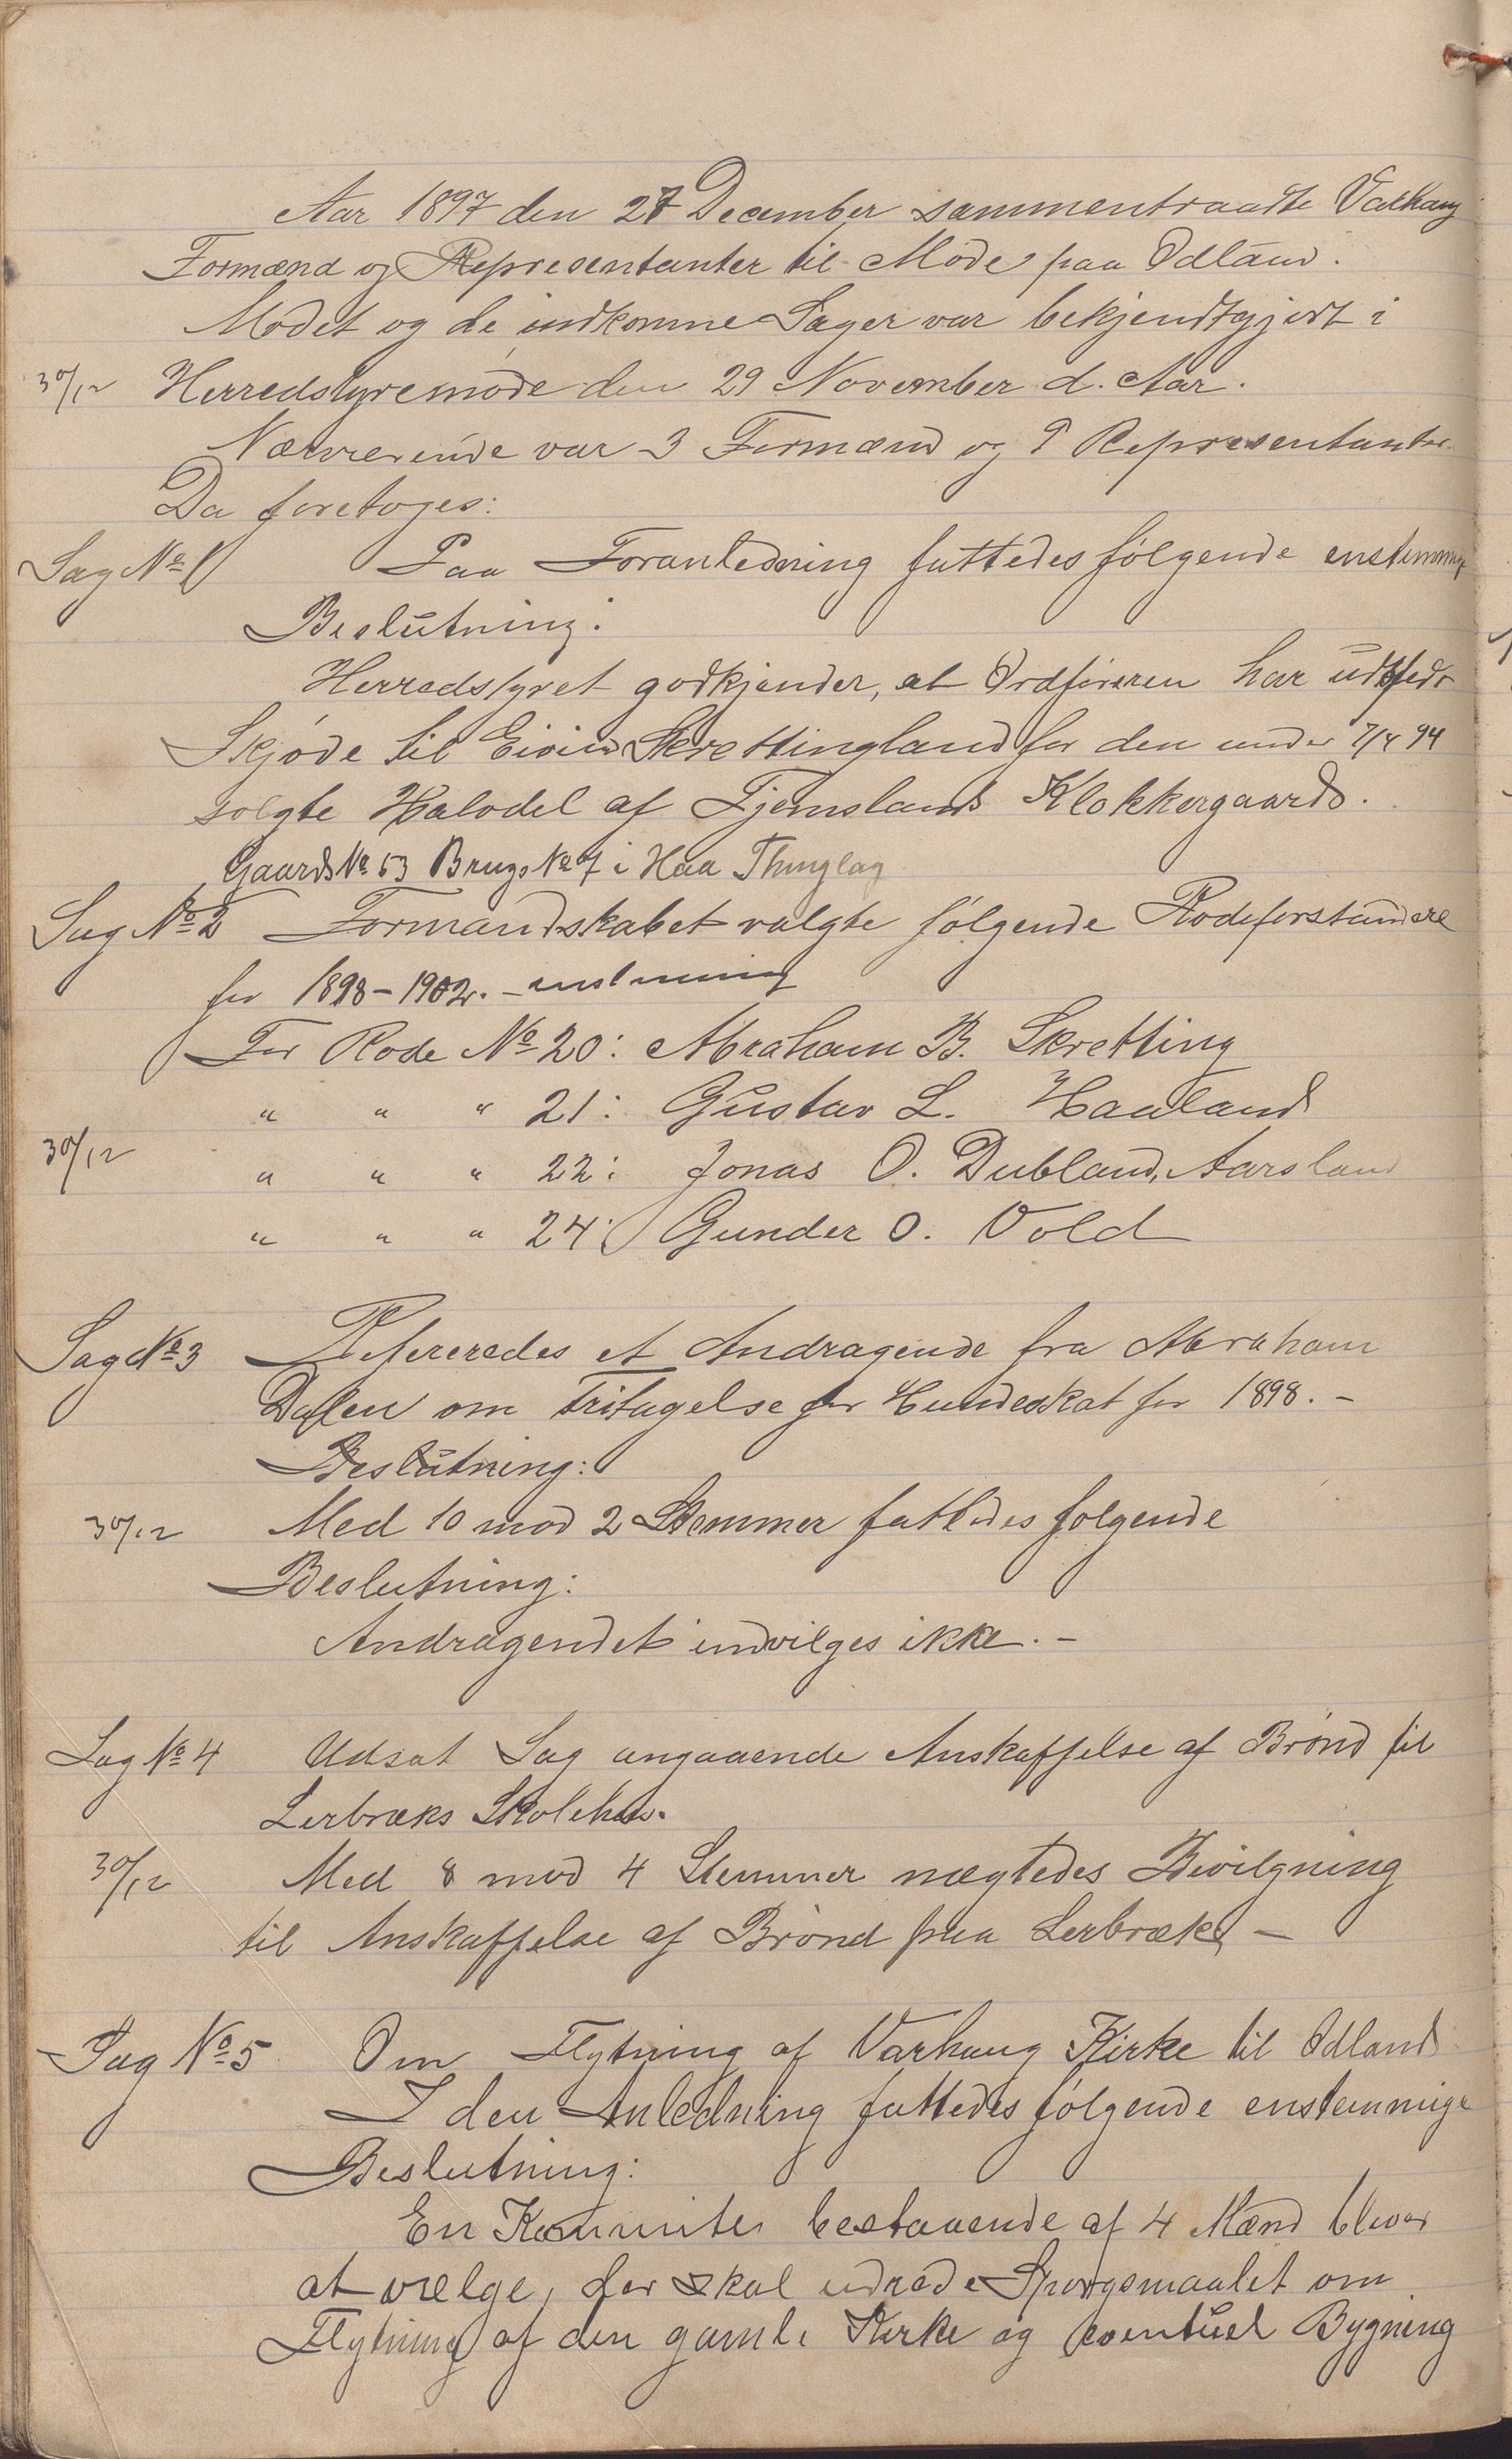 Aar 1897 den 27 December sammentraadte Varhaug
Formænd og Repræsentanter til Møde paa Ødland.
Mødet og de indkomne Sager var bekjendtgjort i
30/12 Herredstyremøde den 29 November d. Aar.
Nærværende var 3 Formænd og 9 Repræsentanter.
Da foretoges:
Sag No 1 Paa Foranledning fattedes følgende enstemmige
Beslutning:
Herredstyret godkjender, at Ordføreren har udstedt
Skjøde til Eivind Skrettingland for den under 7/4 94
solgte Halvdel af Tjemslands Klokkergaard.
Gaards No 53 Brugs No 7 i Haa Thinglag
Sag No 2 Formandskabet valgte følgende Rodeforstandere
for 1898-1902. - enstemmig
For Rode No 20: Abraham B. Skretting
" " " 21: Gustav L. Haaland
30/12 " " " 22: Jonas O. Dubland, Aarsland
" " " 24: Gunder O. Vold
Sag No 3 Refereredes et Andragende fra Abraham
Dalen om Fritagelse for Hundeskat for 1898. -
Beslutning:
30/12 Med 10 mod 2 Stemmer fattedes følgende
Beslutning:
Andragendet indvilges ikke. -
Sag No 4 Udsat Sag angaaende Anskaffelse af Brønd til
Lerbræks Skolehus.
30/12 Med 8 mod 4 Stemmer nægtedes Bevilgning
til Anskaffelse af Brønd paa Lerbræk -
Sag No 5 Om Flytning af Varhaug Kirke til Ødland
I den Anledning fattedes følgende enstemmige
Beslutning:
En Kommite bestaaende af 4 Mænd bliver
at vælge, der skal udrede Spørgsmaalet om
Flytning af den gamle Kirke og eventuel Bygning